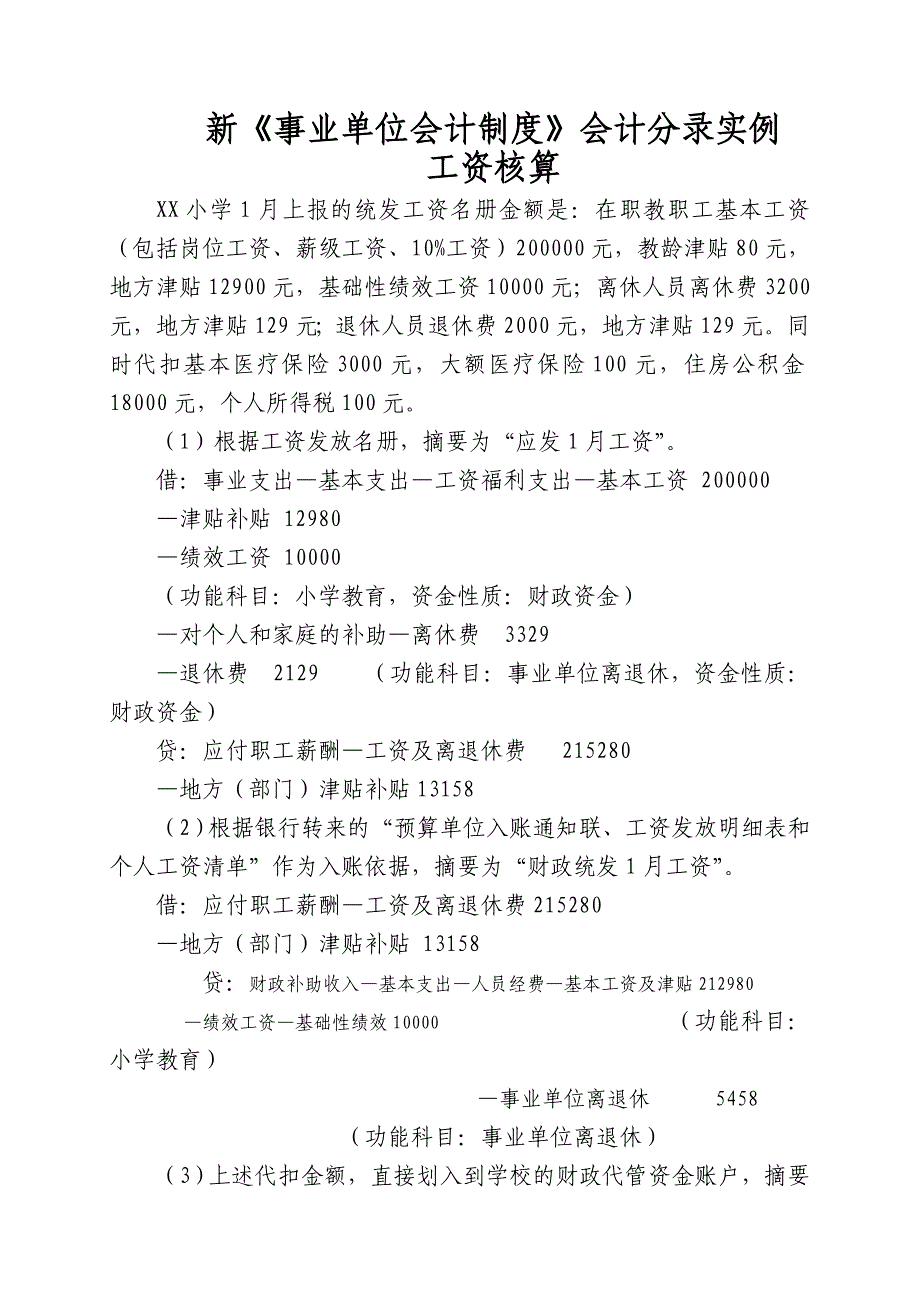 新《事业单位会计制度》会计分录实例
工资核算
XX 小学 1 月上报的统发工资名册金额是：在职教职工基本工资
（包括岗位工资、薪级工资、10%工资）200000 元，教龄津贴 80 元，
地方津贴 12900 元，基础性绩效工资 10000 元；离休人员离休费 3200
元，地方津贴 129 元；退休人员退休费 2000 元，地方津贴 129 元。同
时代扣基本医疗保险 3000 元，大额医疗保险 100 元，住房公积金
18000 元，个人所得税 100 元。
（1）根据工资发放名册，摘要为“应发 1 月工资”。
借：事业支出—基本支出—工资福利支出—基本工资 200000
—津贴补贴 12980
—绩效工资 10000
（功能科目：小学教育，资金性质：财政资金）
—对个人和家庭的补助—离休费 3329
—退休费 2129 （功能科目：事业单位离退休，资金性质：
财政资金）
贷：应付职工薪酬—工资及离退休费 215280
—地方（部门）津贴补贴 13158
（2）根据银行转来的“预算单位入账通知联、工资发放明细表和
个人工资清单”作为入账依据，摘要为“财政统发 1 月工资”。
借：应付职工薪酬—工资及离退休费 215280
—地方（部门）津贴补贴 13158
贷：财政补助收入—基本支出—人员经费—基本工资及津贴 212980
—绩效工资—基础性绩效 10000 （功能科目：
小学教育）
—事业单位离退休 5458
（功能科目：事业单位离退休）
（3）上述代扣金额，直接划入到学校的财政代管资金账户，摘要